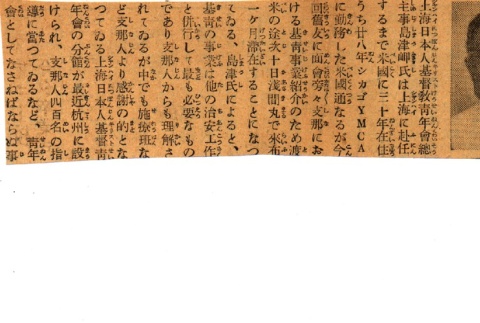 上海日本人基督敎靑年會總
主事島津岬氏は上海に赴任
するまで米國に三十年在住
うち廿八年シカゴYMCA
に勤務した米國通なるが今
回舊友に面會旁々支那にお
ける基靑事業紹介のため渡
米の途次十日淺間丸で来布
一ケ月滯在することになつ
てゐる、島津氏によると、
基靑の事業は他の治安工作
と併行して最も必要なもの
であり支那人からも理解さ
れてゐるが中でも施療班な
ど支那人より感謝の的とな
つてゐる上海日本人基督靑
年會の分館が最近杭州に設
けられ、支那人四百名の指
導に當つてゐるなど、靑年
會としてなさねばならぬ事